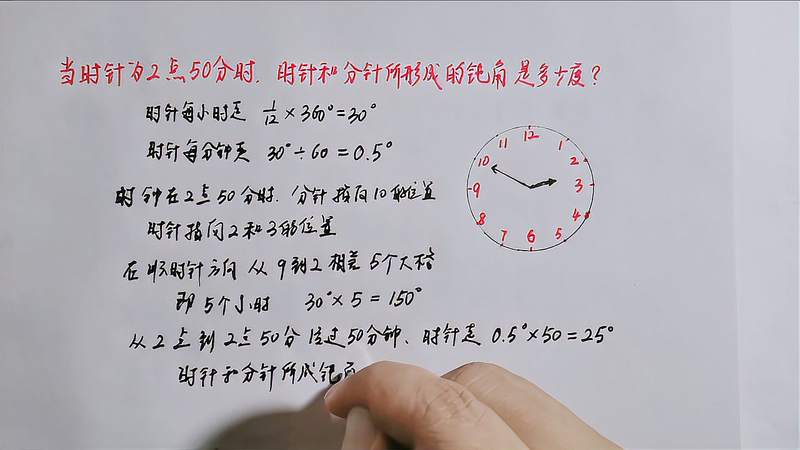 当时针为2点50分时.时针和分针所形成的钝角是多少度?
时针每小时走 1/12×360°=30°
时针每分钟走 30°÷60=0.5°
时钟在2点50分时.分针指向10的位置
时针指向2和3的位置
在顺时针方向从9到2相差5个大格
即5个小时 30°×5=150°
从2点到2点50分经过50分钟、时针走 0.5°×50=25°
时针和分针所成钝
12
1
2
3
4
5
6
7
8
9
10
11